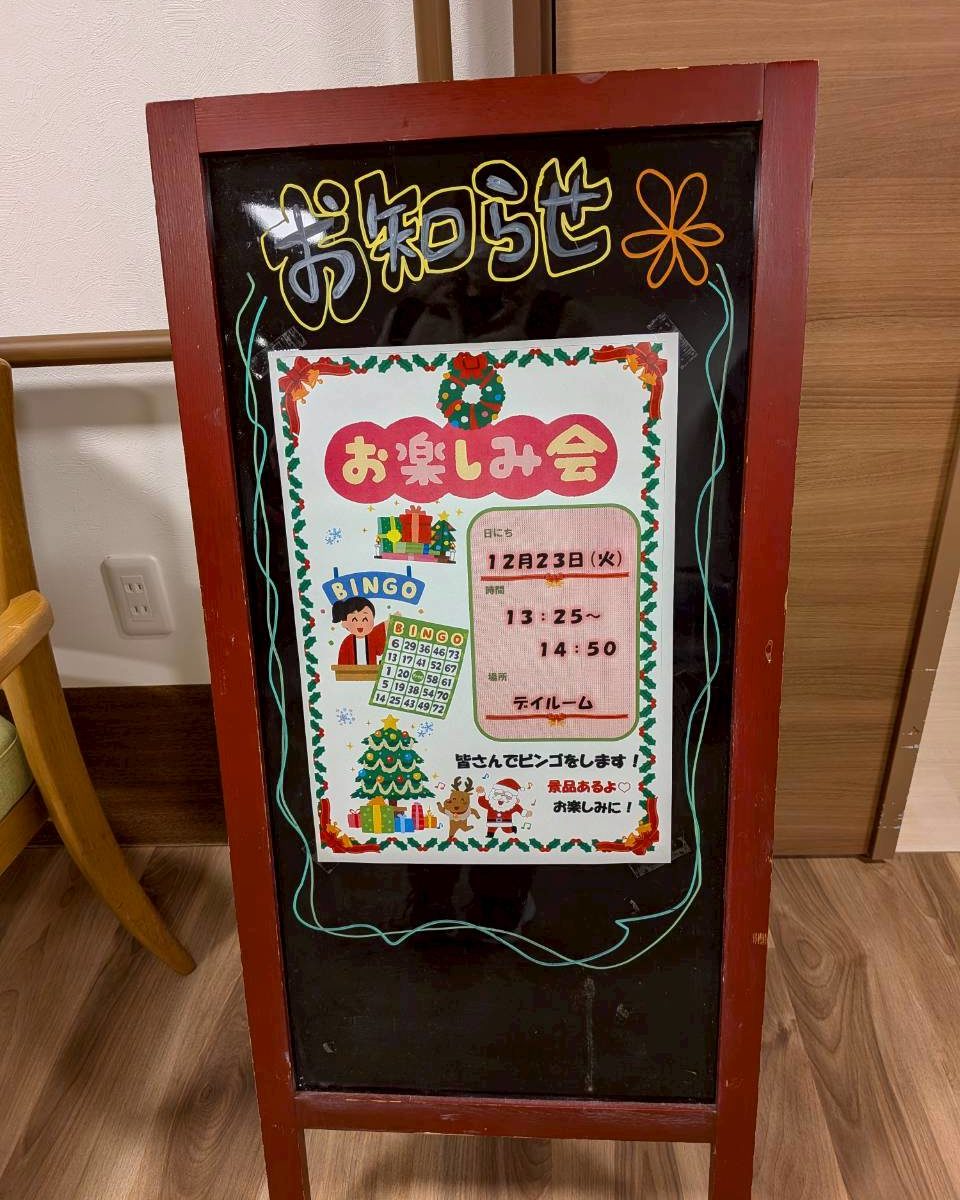 お知らせ
お楽しみ会
日にち
12月23日(火)
時間
13:25~
14:50
場所
デイルーム
BINGO
BINGO
6 29 36 46 73
13 17 41 52 67
1 20 58 61
5 19 38 54 70
14 25 43 49 72
皆さんでビンゴをします!
景品あるよ♡
お楽しみに!